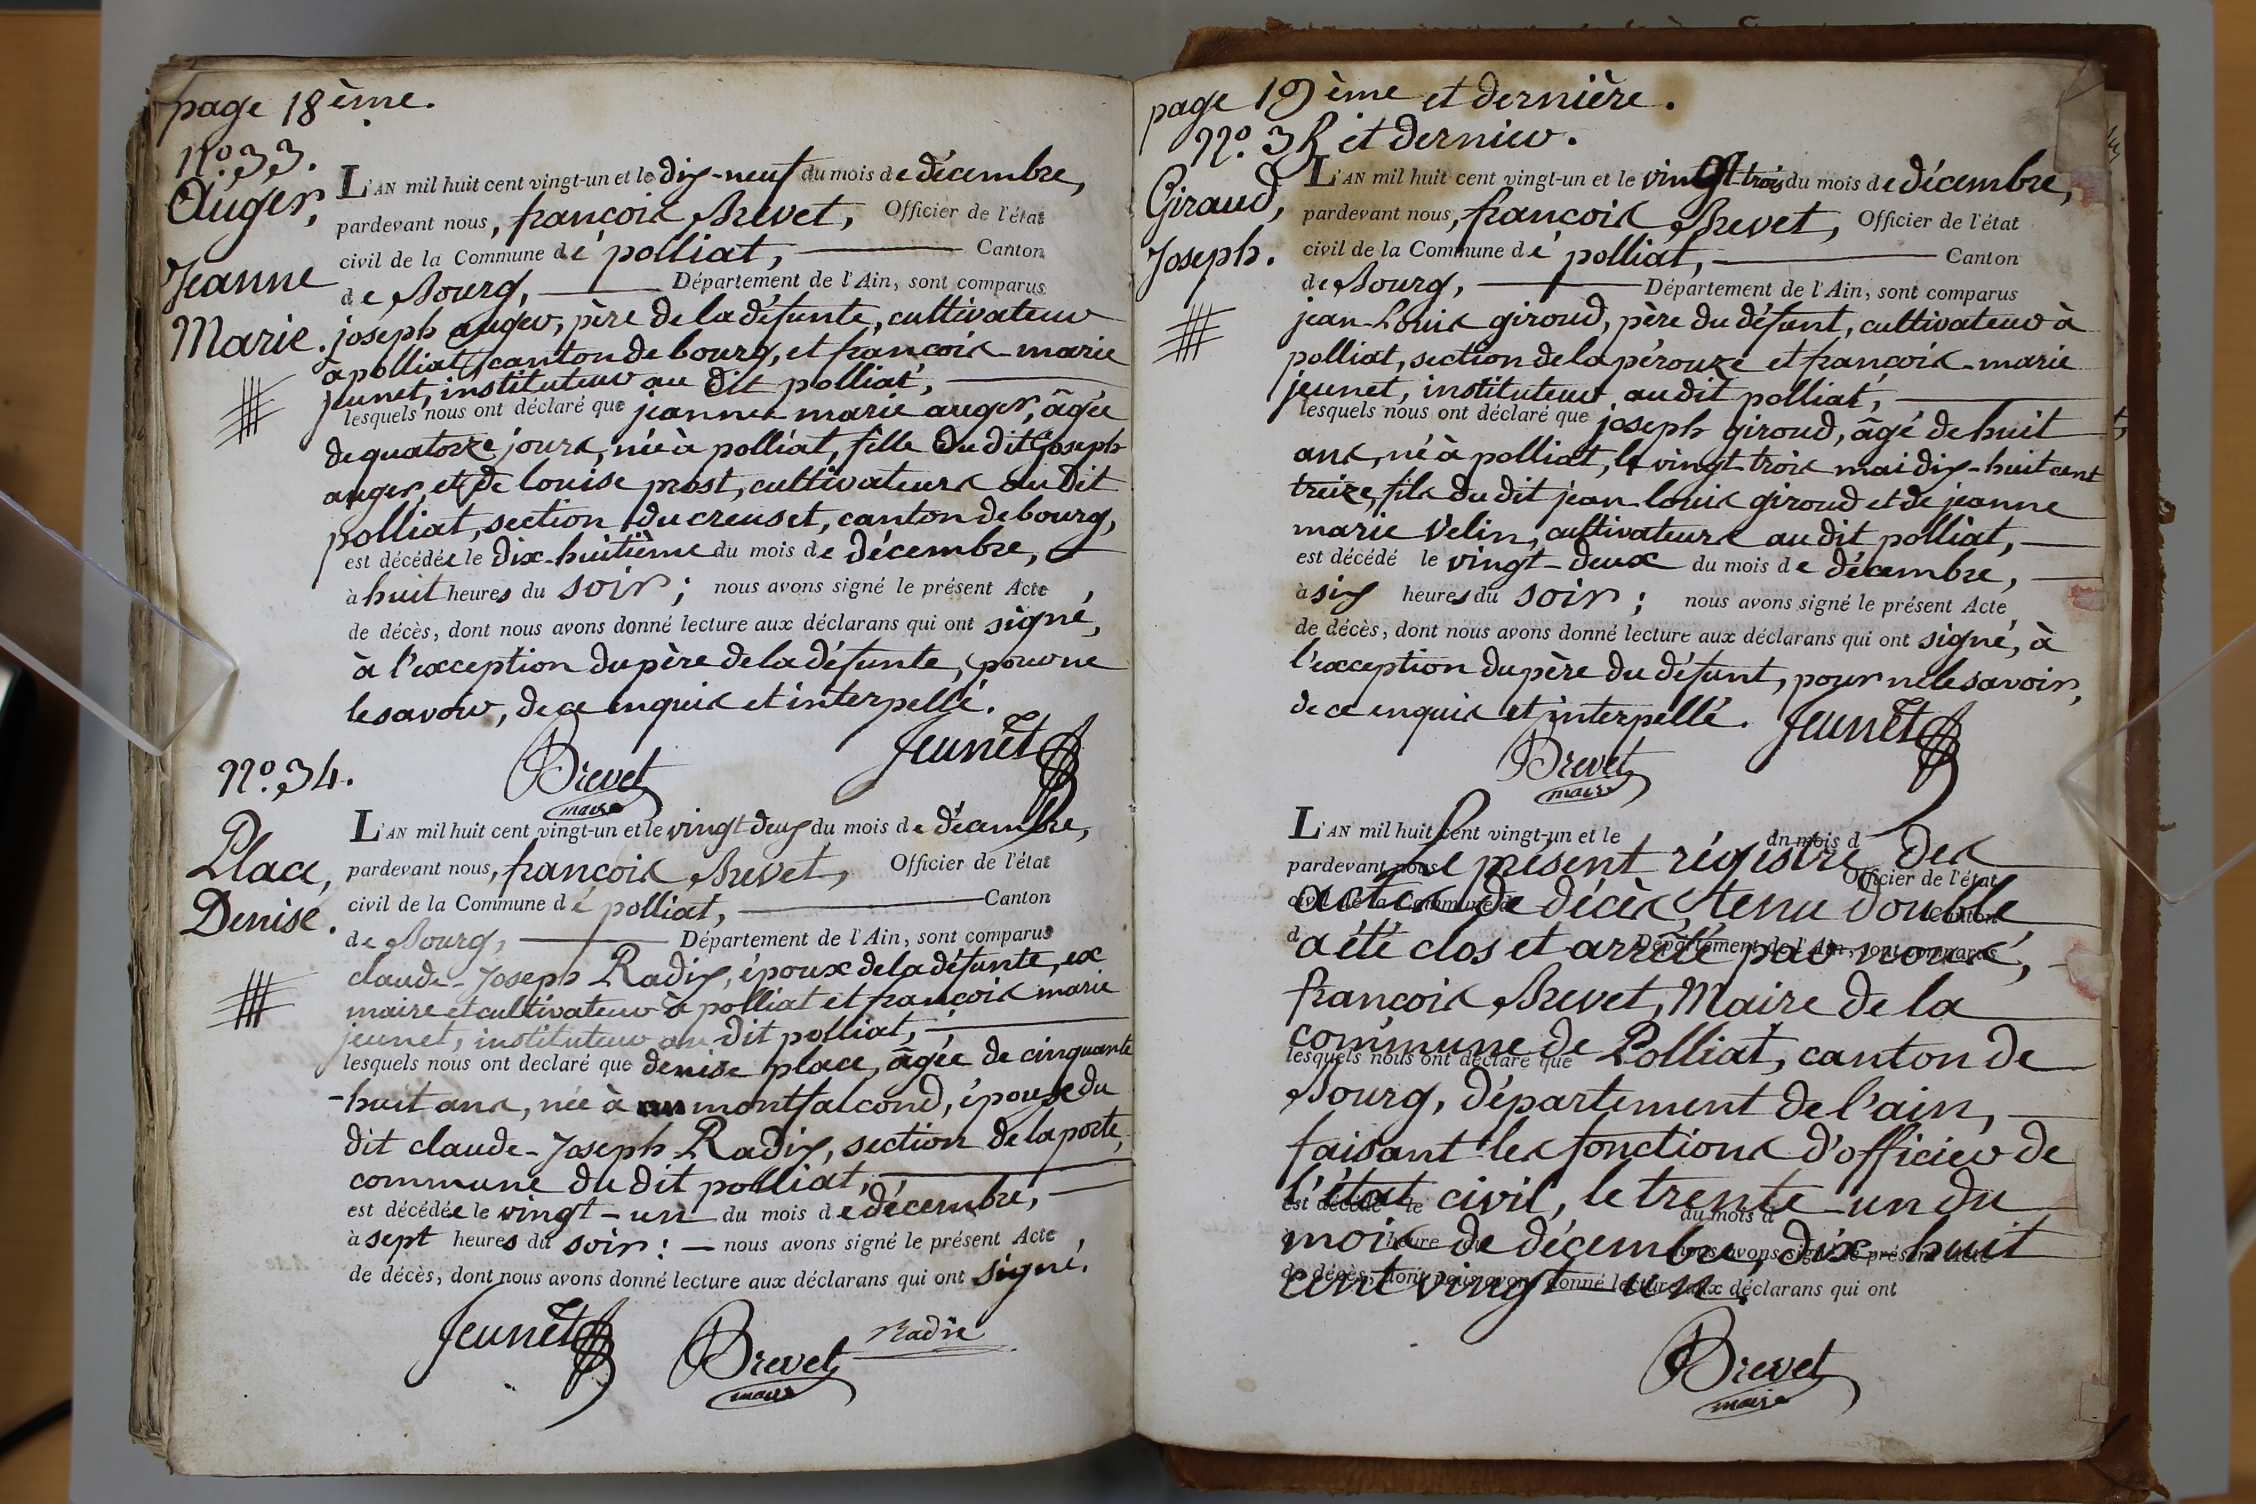 page 18ème.
N.º 33.
Auger,
Jeanne
Marie.
L'AN mil huit cent vingt-un et le dix-neuf du mois de décembre,
pardevant nous, françois Brevet, Officier de l'état
civil de la Commune de polliat, Canton
de Bourg, Département de l'Ain, sont comparus
joseph auger, père de la défunte, cultivateur
à polliat, canton de bourg, et françois-marie
jeunet, instituteur au dit polliat,
lesquels nous ont déclaré que jeanne marie auger, âgée
de quatorze jours, née à polliat, fille du dit Joseph
auger, et de louise prost, cultivateurs au dit
polliat, section du creuset, canton de bourg,
est décédée le dix-huitième du mois de décembre,
à huit heures du soir; nous avons signé le présent Acte
de décès, dont nous avons donné lecture aux déclarans qui ont signé,
à l'exception du père de la défunte, pour ne
le savoir, de ce enquis et interpellé.
Jeunet
Brevet
maire
N.º 34.
Place,
Denise.
L'AN mil huit cent vingt-un et le vingt deux du mois de décembre,
pardevant nous, françois Brevet, Officier de l'état
civil de la Commune de polliat, Canton
de Bourg, Département de l'Ain, sont comparus
claude-Joseph Radix, époux de la défunte, ex
maire et cultivateur à polliat et françois marie
jeunet, instituteur au dit polliat,
lesquels nous ont declaré que denise place, âgée de cinquante
-huit ans, née à montfalcond, épouse du
dit claude-Joseph Radix, section de la porte,
commune du dit polliat,
est décédée le vingt-un du mois de décembre,
à sept heures du soir: nous avons signé le présent Acte
de décès, dont nous avons donné lecture aux déclarans qui ont signé.
Jeunet
Brevet
maire
Radix
page 19ème et dernière.
N.º 35 et dernier.
Giraud,
Joseph.
L'AN mil huit cent vingt-un et le vingt-trois du mois de décembre,
pardevant nous, françois Brevet, Officier de l'état
civil de la Commune de polliat, Canton
de Bourg, Département de l'Ain, sont comparus
jean-Louis giroud, père du défunt, cultivateur à
polliat, section de la pérouze et françois-marie
jeunet, instituteur au dit polliat,
lesquels nous ont déclaré que joseph giroud, âgé de huit
ans, né à polliat, le vingt-trois mai dix-huit cent
treize, fils du dit jean-louis giroud et de jeanne
marie Velin, cultivateurs au dit polliat,
est décédé le vingt-deux du mois de décembre,
à six heures du soir; nous avons signé le présent Acte
de décès, dont nous avons donné lecture aux déclarans qui ont signé, à
l'exception du père du défunt, pour ne le savoir,
de ce enquis et interpellé.
Jeunet
Brevet
maire
L'AN mil huit cent vingt-un et le du mois d
Le présent régistre des
pardevant nous Officier de l'état
actes de décès, tenu double,
civil de la Commune d Canton
a été clos et arrêté par nous,
d Département de l'Ain, sont comparus
françois Brevet, Maire de la
commune de Polliat, canton de
lesquels nous ont déclaré que
Bourg, département de l'ain,
faisant les fonctions d'officier de
l'état civil, le trente-un du
est décédé le du mois d
mois de décembre, dix-huit
heure du nous avons signé le présent Acte
cent vingt-un.
de décès, dont nous avons donné lecture aux déclarans qui ont
Brevet
maire